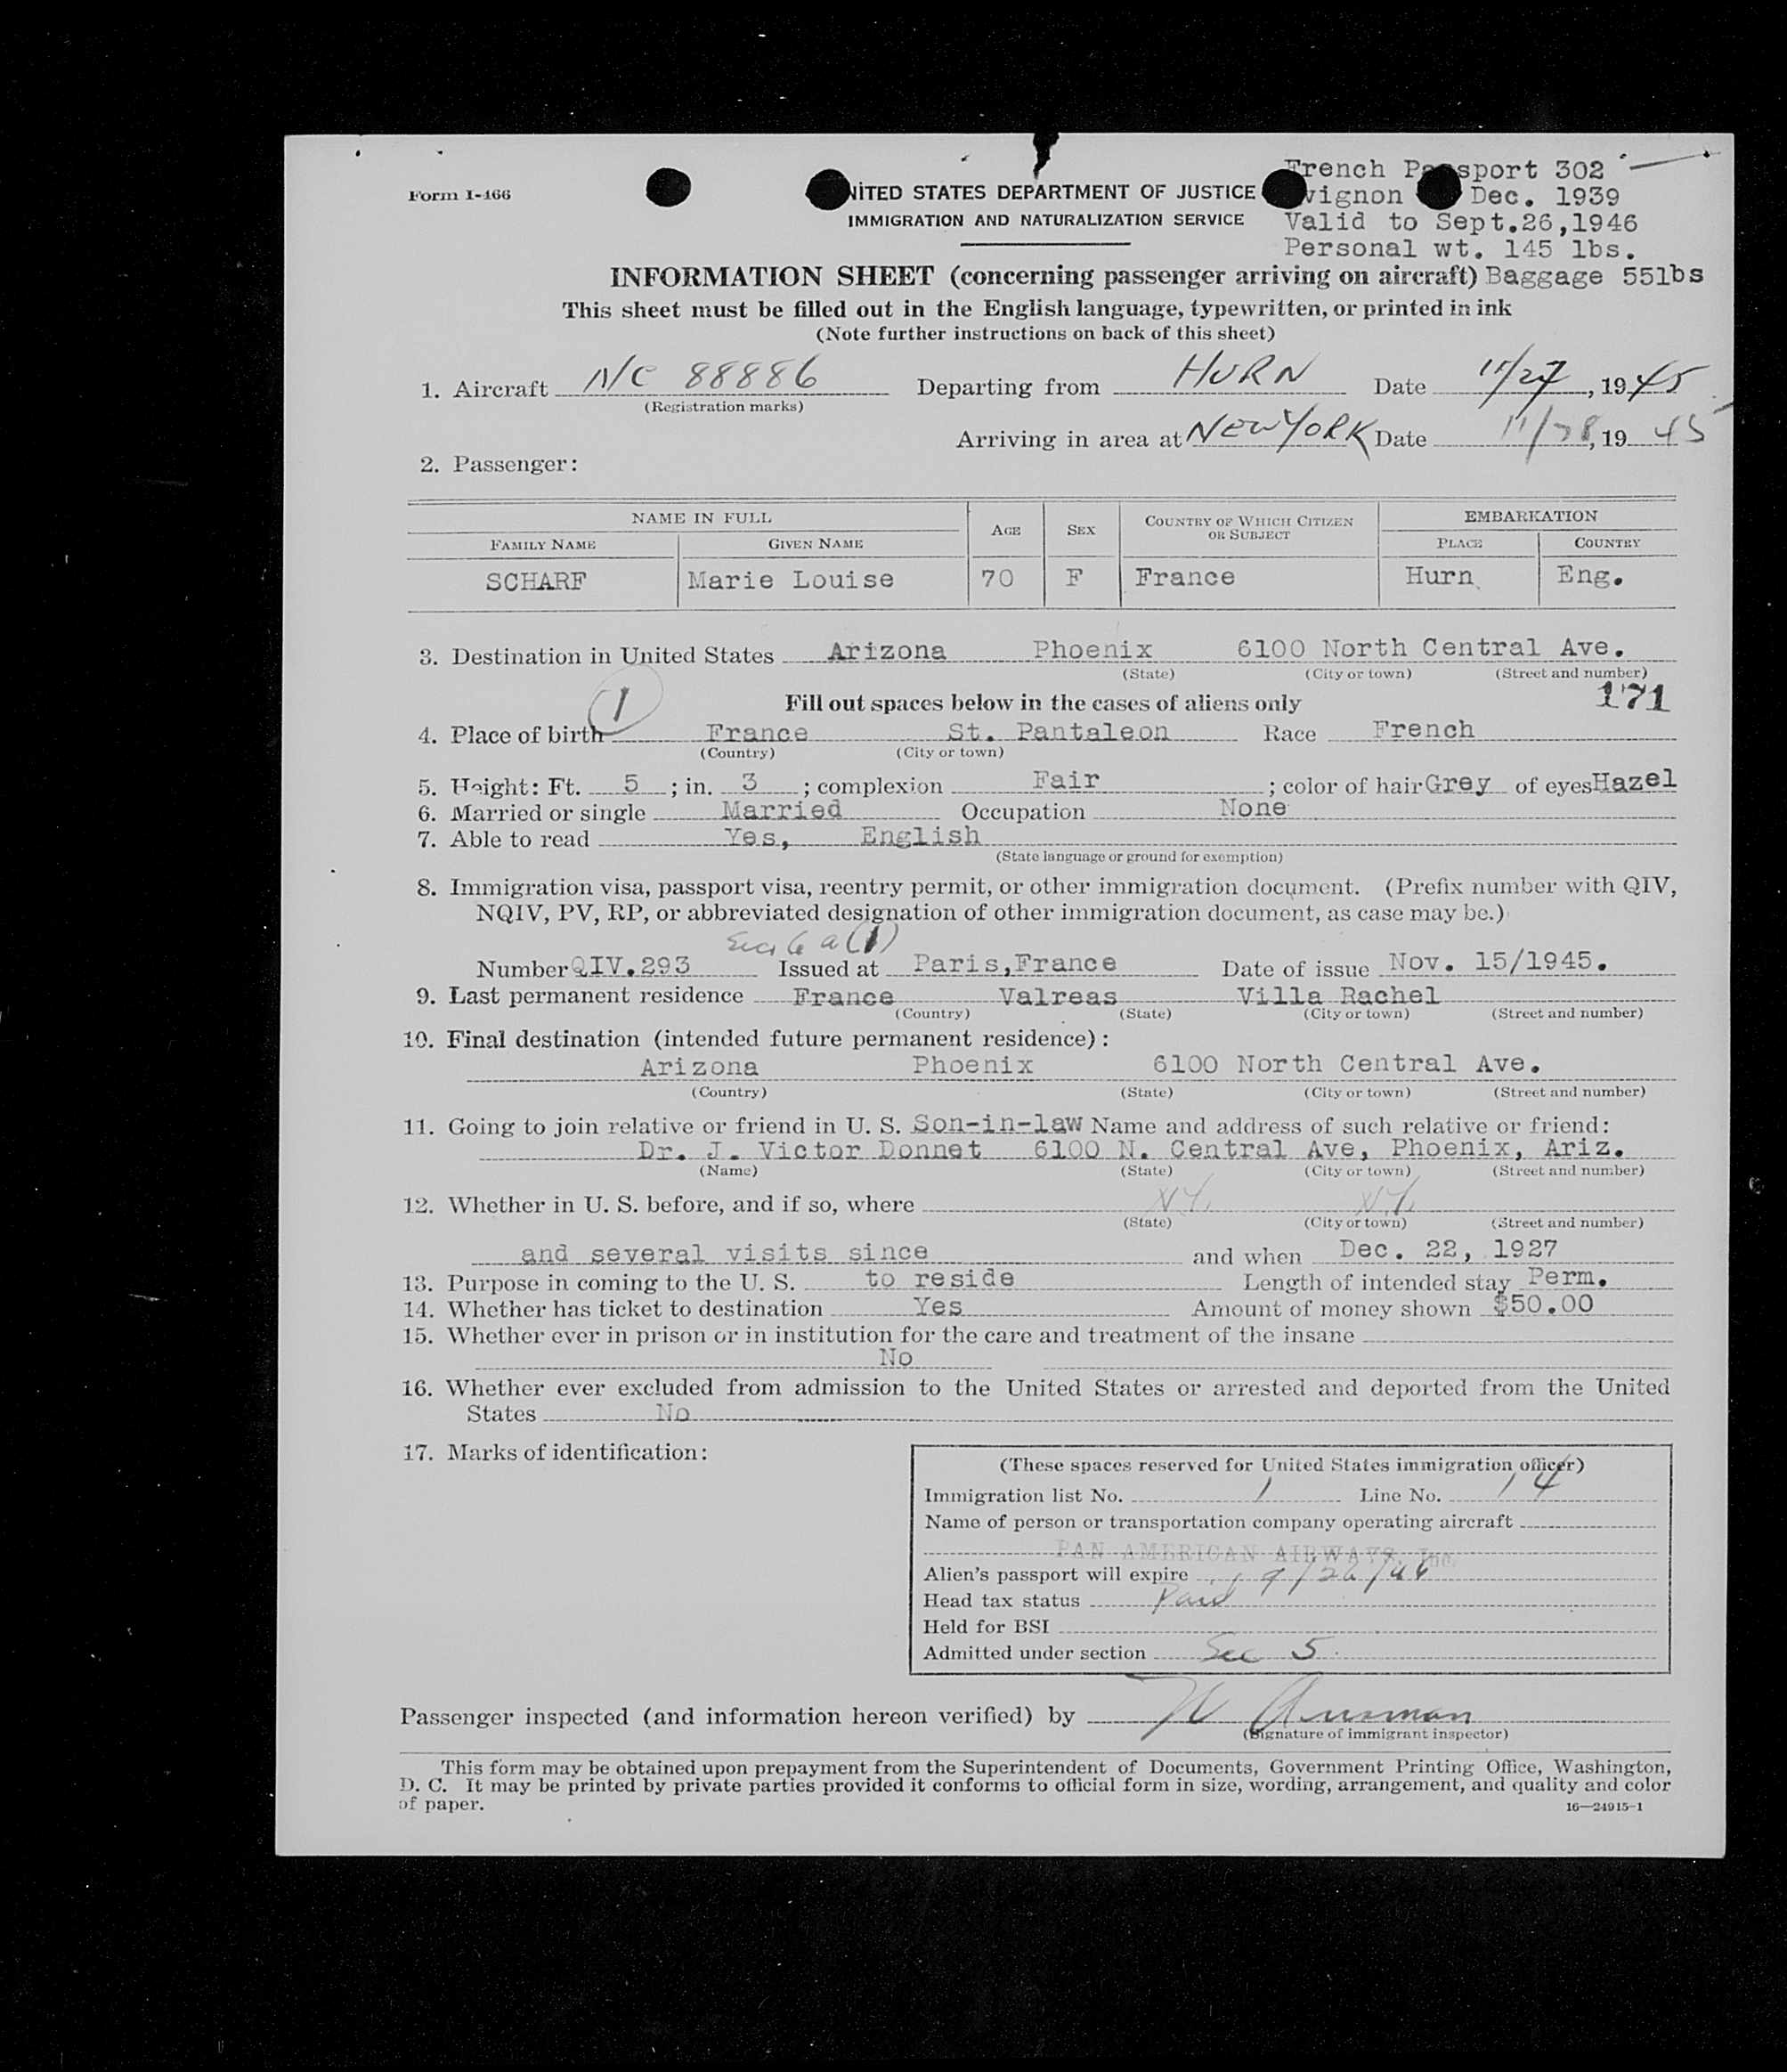 French Passport 302
Form I-466
UNITED STATES DEPARTMENT OF JUSTICE
Avignon Dec. 1939
IMMIGRATION AND NATURALIZATION SERVICE
Valid to Sept.26,1946
Personal wt. 145 lbs.
INFORMATION SHEET (concerning passenger arriving on aircraft) Baggage 55lbs
This sheet must be filled out in the English language, typewritten, or printed in ink
(Note further instructions on back of this sheet)
1. Aircraft N/C 88886 Departing from HURN Date 11/27, 1945
(Registration marks)
Arriving in area at NEW YORK Date 11/28, 1945
2. Passenger:
NAME IN FULL AGE SEX COUNTRY OF WHICH CITIZEN OR SUBJECT EMBARKATION
FAMILY NAME GIVEN NAME PLACE COUNTRY
SCHARF Marie Louise 70 F France Hurn Eng.
3. Destination in United States Arizona Phoenix 6100 North Central Ave.
(State) (City or town) (Street and number)
1 Fill out spaces below in the cases of aliens only 171
4. Place of birth France St. Pantaleon Race French
(Country) (City or town)
5. Height: Ft. 5 ; in. 3 ; complexion Fair ; color of hair Grey of eyes Hazel
6. Married or single Married Occupation None
7. Able to read Yes, English
(State language or ground for exemption)
8. Immigration visa, passport visa, reentry permit, or other immigration document. (Prefix number with QIV,
NQIV, PV, RP, or abbreviated designation of other immigration document, as case may be.)
6 a (1)
Number QIV.293 Issued at Paris,France Date of issue Nov. 15/1945.
9. Last permanent residence France Valreas Villa Rachel
(Country) (State) (City or town) (Street and number)
10. Final destination (intended future permanent residence):
Arizona Phoenix 6100 North Central Ave.
(Country) (State) (City or town) (Street and number)
11. Going to join relative or friend in U. S. Son-in-law Name and address of such relative or friend:
Dr. J. Victor Donnet 6100 N. Central Ave, Phoenix, Ariz.
(Name) (State) (City or town) (Street and number)
12. Whether in U. S. before, and if so, where N.Y. N.Y.
(State) (City or town) (Street and number)
and several visits since and when Dec. 22, 1927
13. Purpose in coming to the U. S. to reside Length of intended stay Perm.
14. Whether has ticket to destination Yes Amount of money shown $50.00
15. Whether ever in prison or in institution for the care and treatment of the insane
No
16. Whether ever excluded from admission to the United States or arrested and deported from the United
States No
17. Marks of identification:
(These spaces reserved for United States immigration officer)
Immigration list No. 1 Line No. 14
Name of person or transportation company operating aircraft
PAN AMERICAN AIRWAYS, Inc.
Alien's passport will expire 9/26/46
Head tax status Paid
Held for BSI
Admitted under section Sec 5
Passenger inspected (and information hereon verified) by
(Signature of immigrant inspector)
This form may be obtained upon prepayment from the Superintendent of Documents, Government Printing Office, Washington,
D. C. It may be printed by private parties provided it conforms to official form in size, wording, arrangement, and quality and color
of paper.
16—24915-1